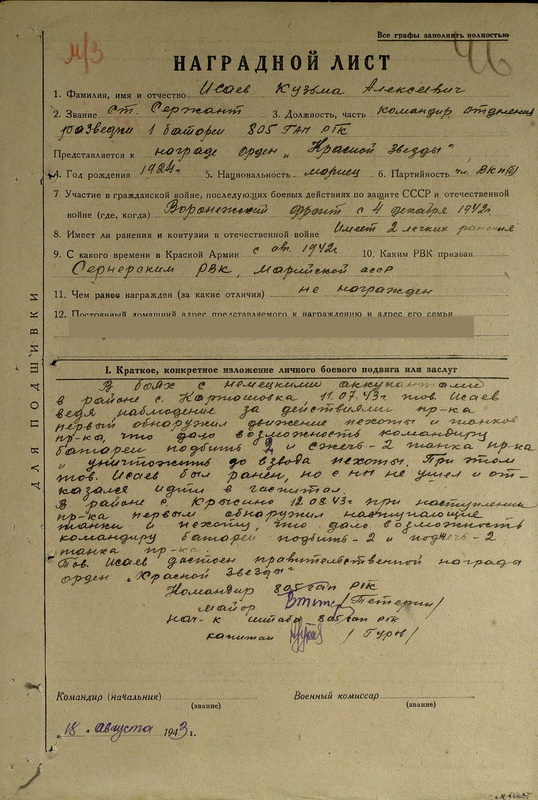 Все графы заполнять полностью
М/3
46
НАГРАДНОЙ ЛИСТ
1. Фамилия, имя и отчество Исаев Кузьма Алексеевич
2. Звание ст. Сержант 3. Должность, часть командир отделения
разведки 1 батареи 805 ГАП РГК
Представляется к награде орден „Красной Звезды"
4. Год рождения 1924г. 5. Национальность мариец 6. Партийность чл. ВКП(б)
7 Участие в гражданской войне, последующих боевых действиях по защите СССР и отечественной
войне (где, когда) Воронежский фронт с 4 декабря 1942г
8. Имеет ли ранения и контузии в отечественной войне Имеет 2 легких ранения
9. С какого времени в Красной Армии с авг. 1942г. 10. Каким РВК призван
Сернурским РВК, Марийской АССР
11. Чем ранее награжден (за какие отличия) не награжден
12. Постоянный домашний адрес представляемого к награждению и адрес его семьи
ДЛЯ ПОДШИВКИ
I. Краткое, конкретное изложение личного боевого подвига или заслуг
В боях с немецкими аккупантами
в районе с. Картошовка, 11.07.43г. тов. Исаев
ведя наблюдение за действиями пр-ка
первой обнаружил движение пехоты и танков
пр-ка, что дало возможность командиру
батареи подбить 2 и сжечь-2 танка пр-ка
и уничтожить до взвода пехоты. При этом
тов. Исаев был ранен, но с нп не ушел и от-
казался идти в госпитал.
В районе с. Крысино 12.08.43г при наступлении
пр-ка первым обнаружил наступающие
танки и пехоту, что дало возможность
командиру батареи подбить-2 и поджечь-2
танка пр-ка.
Тов. Исаев достоен правительственной награды
орден „Красной Звезды"
Командир 805 гап РГК
майор /Петерин/
нач-к штаба 805 гап РГК
капитан /Гуров/
Командир (начальник)
(звание)
Военный комиссар
(звание)
„18„ Августа 1943г.